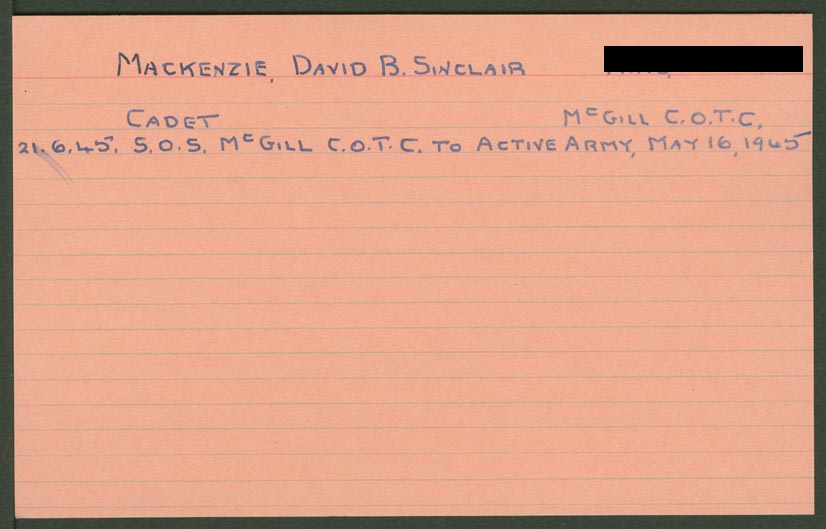 MACKENZIE, DAVID B. SINCLAIR
CADET McGILL C.O.T.C.
21.6.45. S.O.S. McGILL C.O.T.C. TO ACTIVE ARMY, MAY 16, 1945